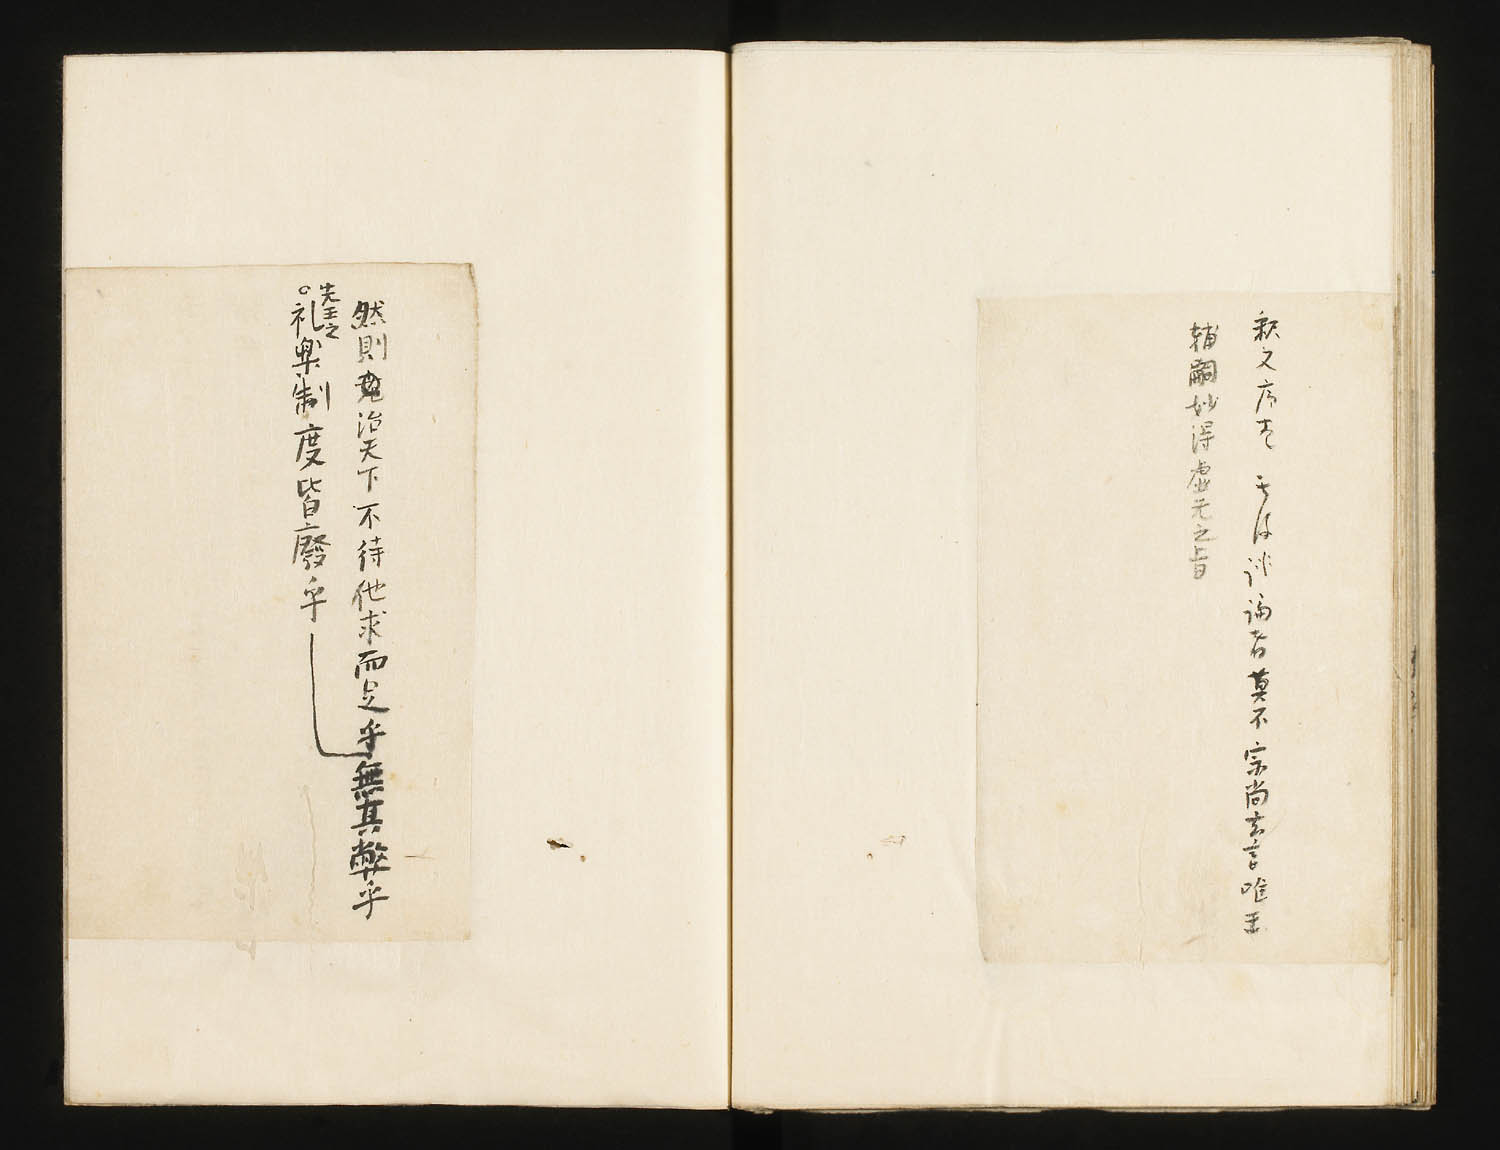 釈文序老 其後談論者莫不宗尚玄言唯王
輔嗣妙得虚无之旨
然則治天下不待他求而足乎無其弊乎
先王之
礼楽制度皆廢乎